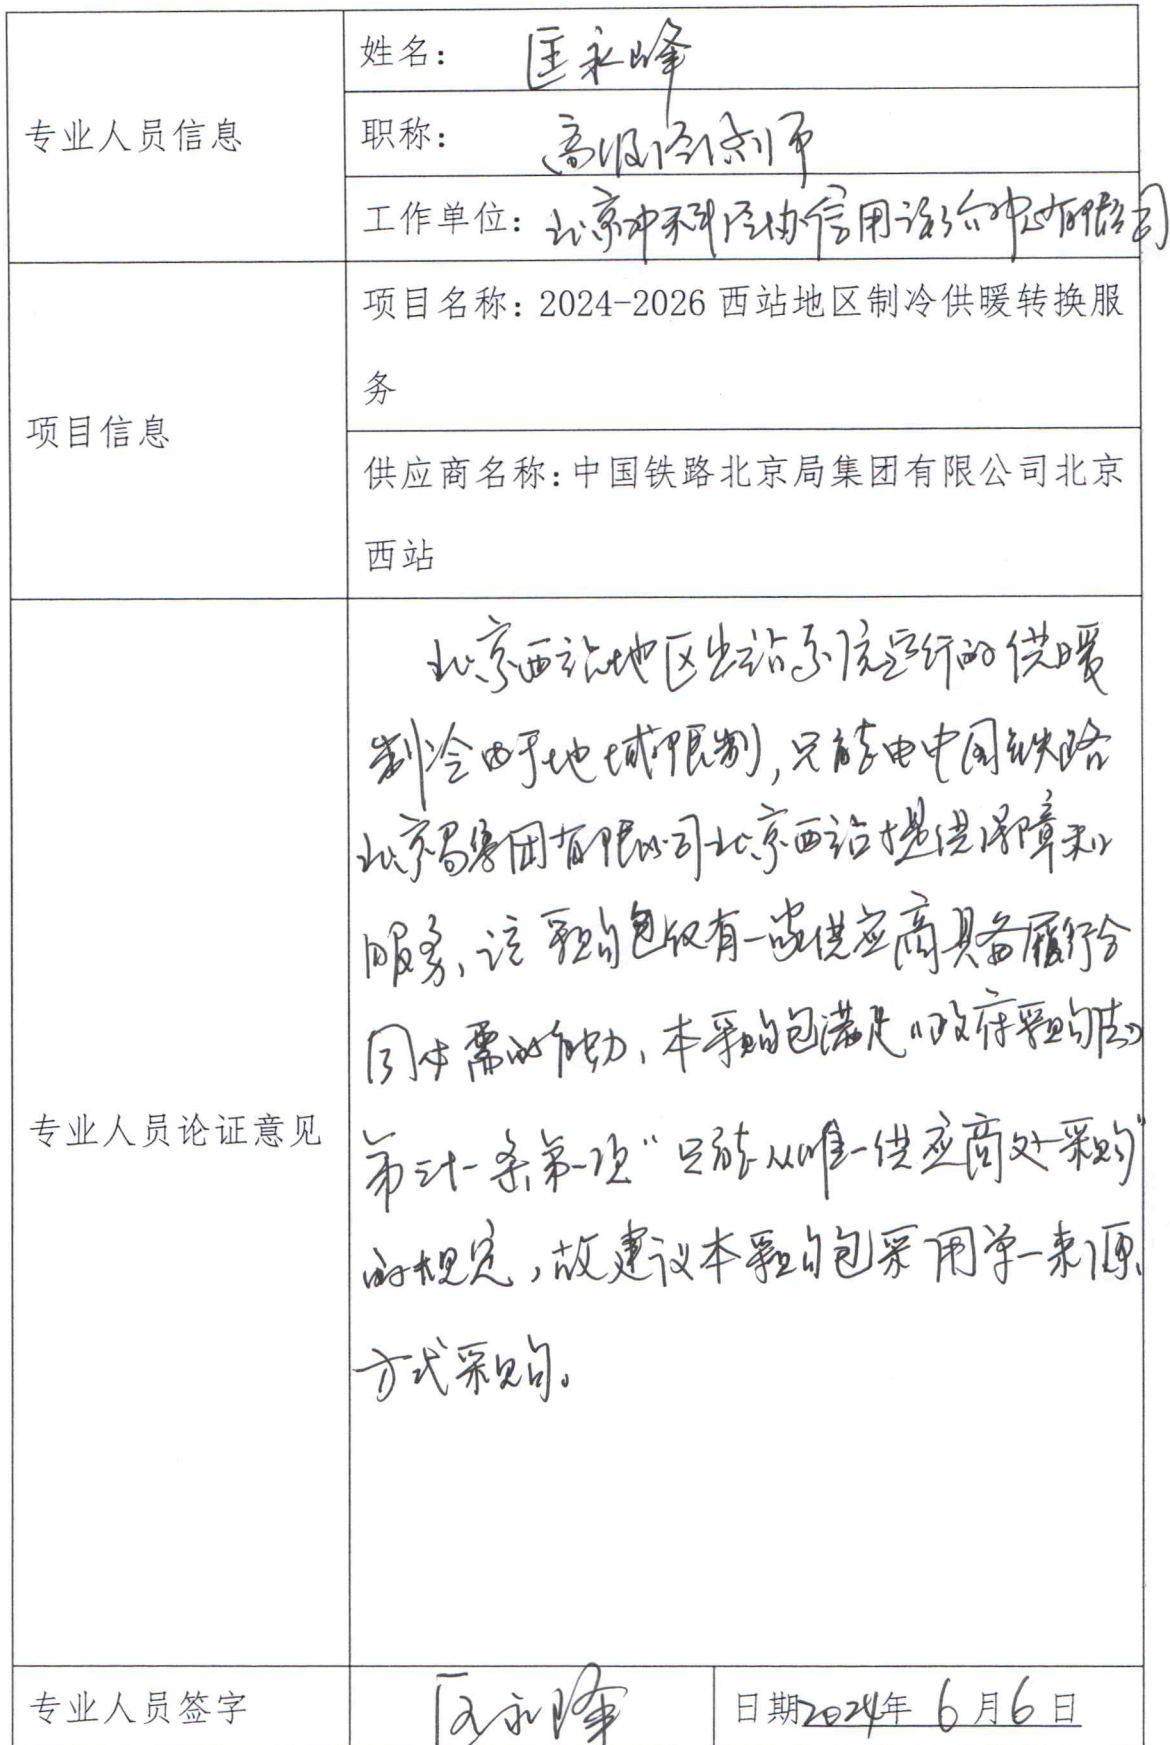 专业人员信息
姓名: 匡永峰
职称: 高级经济师
工作单位: 北京中科经协信用评价中心有限公司
项目信息
项目名称: 2024-2026 西站地区制冷供暖转换服
务
供应商名称: 中国铁路北京局集团有限公司北京
西站
专业人员论证意见
北京西站地区出站系统运行的供暖
制冷由于地域限制,只能由中国铁路
北京局集团有限公司北京西站提供保障和
服务、该采购包仅有一家供应商具备履行合
同所需的能力、本采购包满足《政府采购法》
第三十一条第一项“只能从唯一供应商处采购”
的规定,故建议本采购包采用单一来源
方式采购。
专业人员签字 匡永峰 日期2024年 6月6日